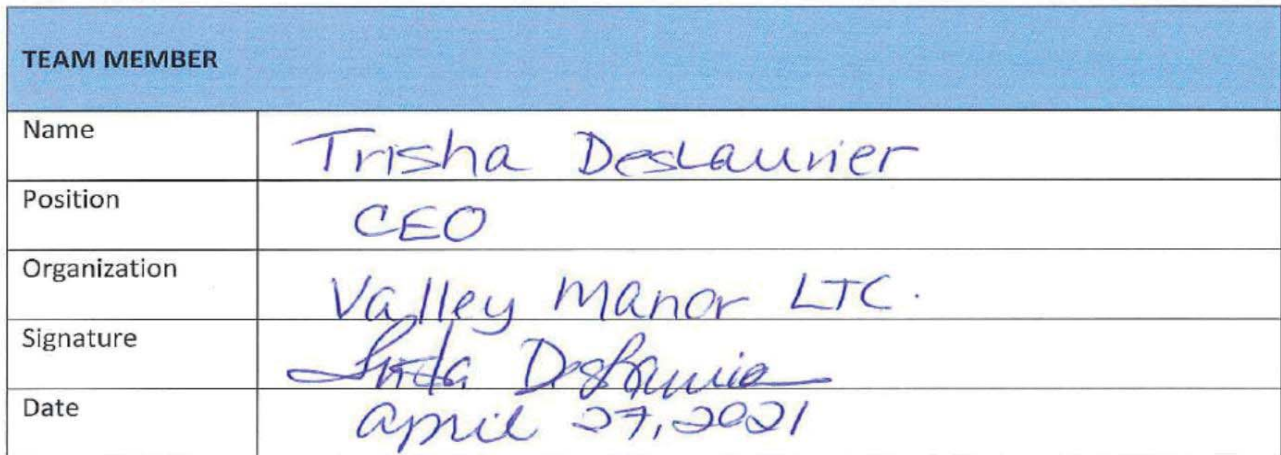 TEAM MEMBER
Name Trisha DesLaurier
Position CEO
Organization Valley Manor LTC.
Signature Trisha DesLaurier
Date April 27, 2021